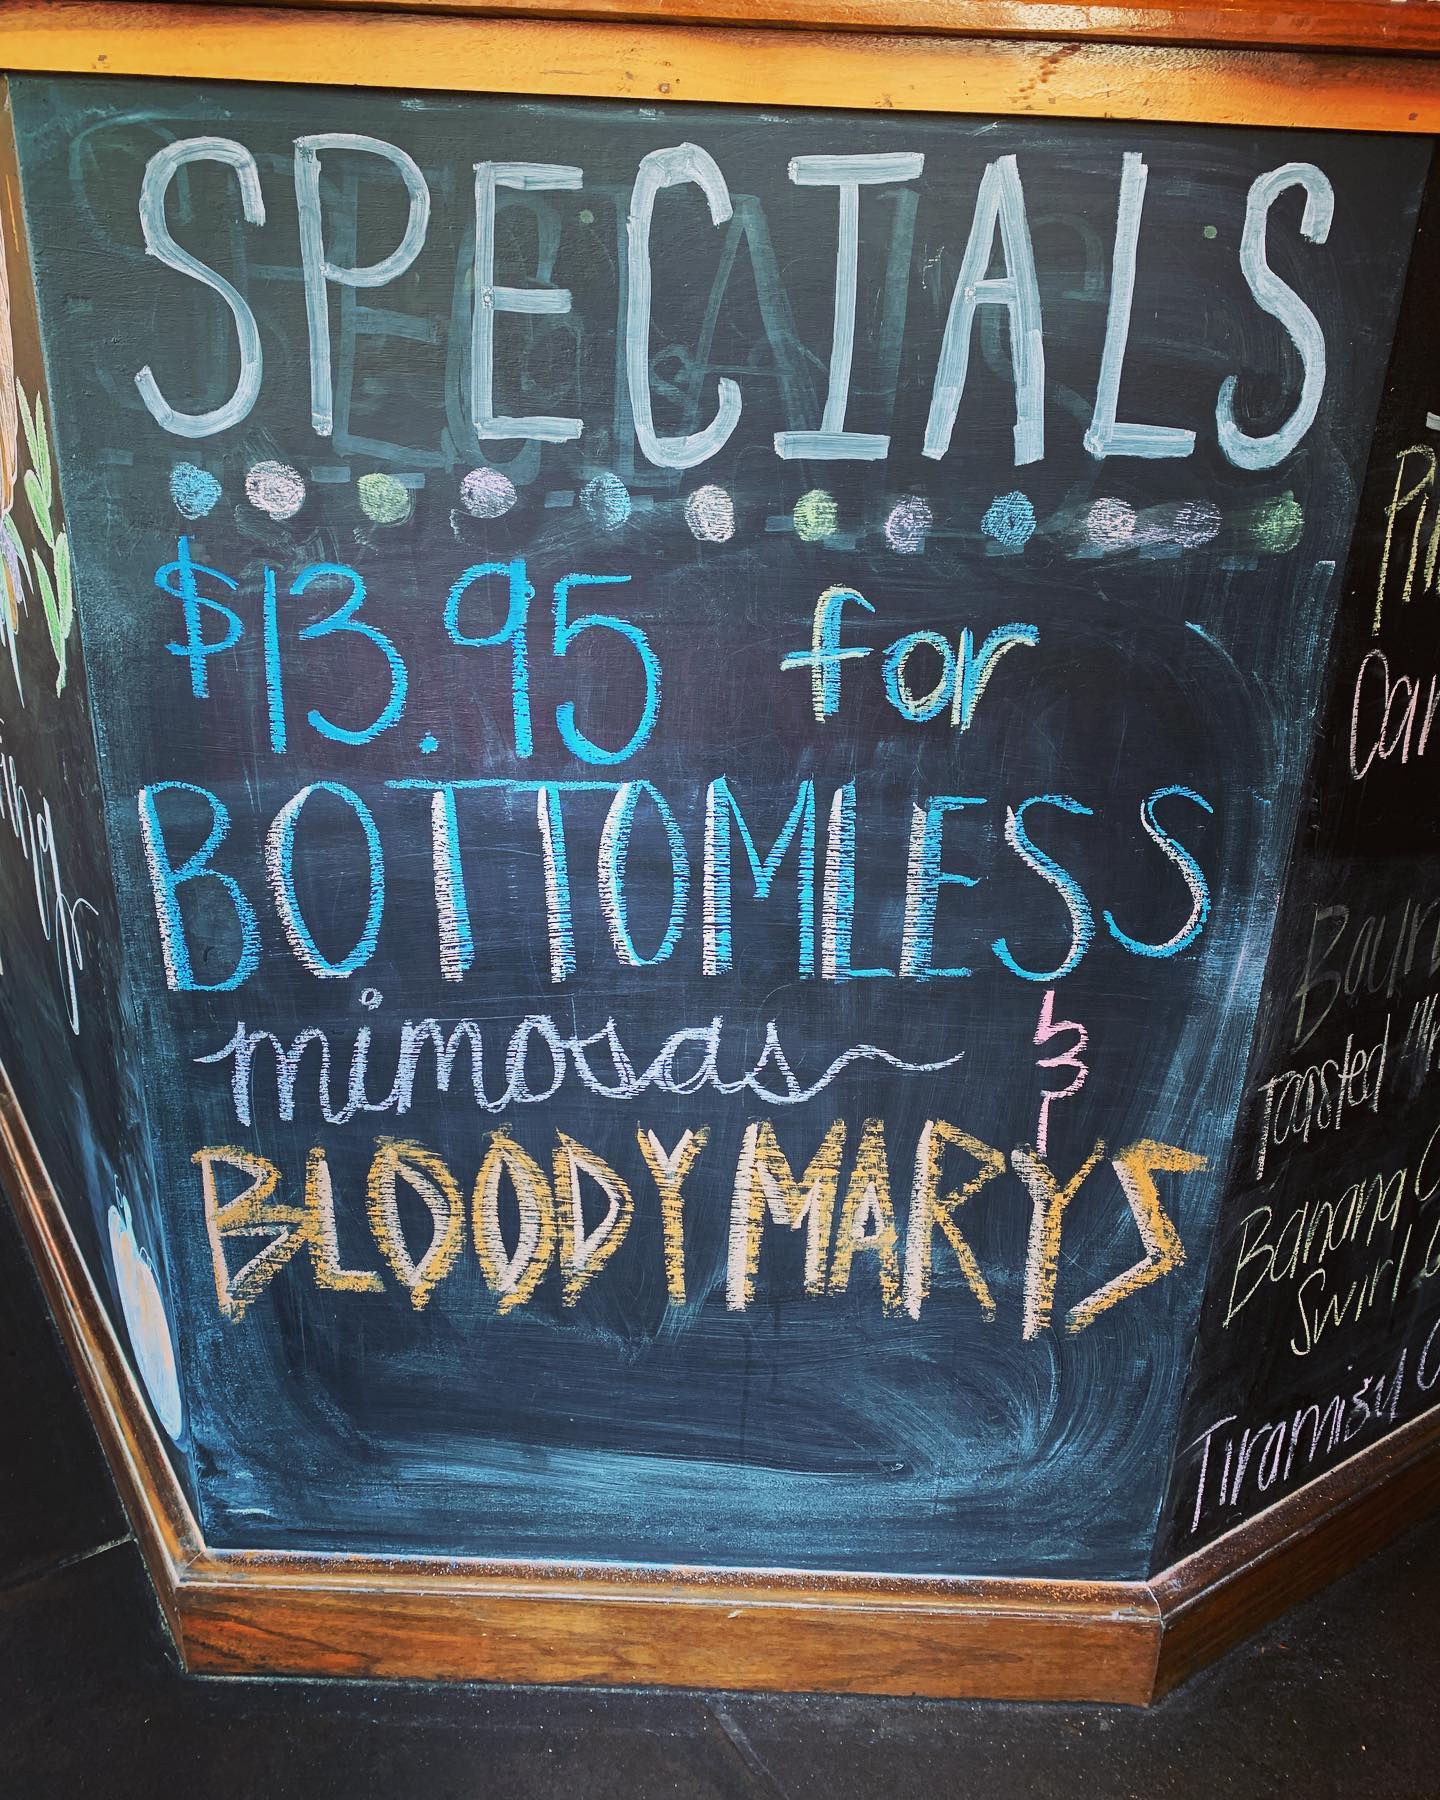 SPECIALS
$13.95 for
BOTTOMLESS
mimosas &
BLOODY MARYS
Toasted
Banana
Swirl
Tiramisu